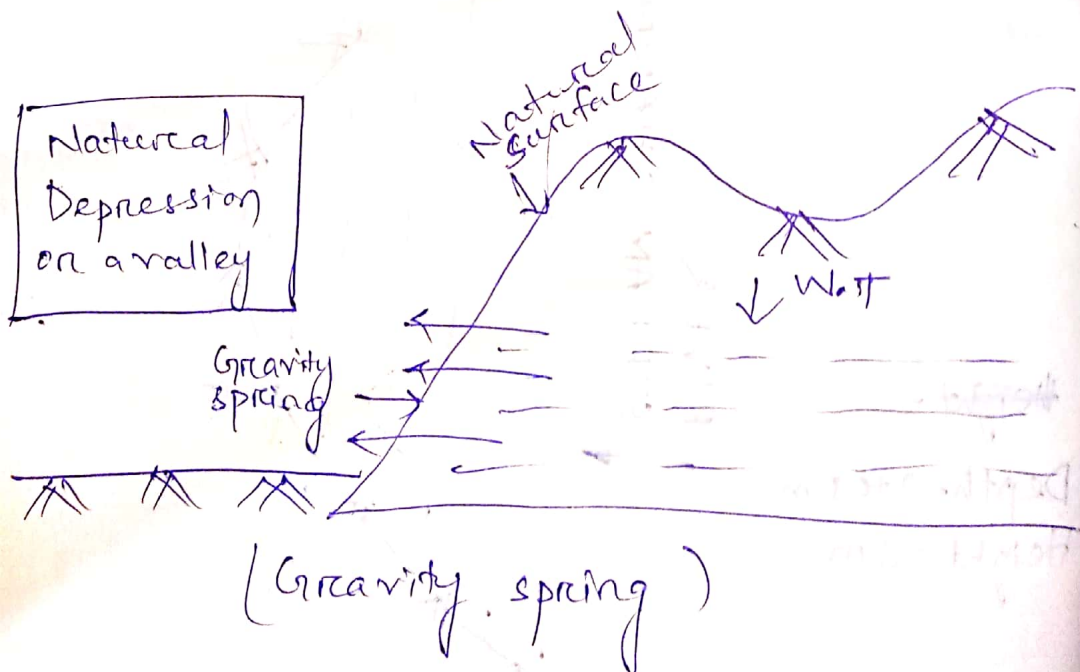 Natural
Depression
or a valley
Natural
surface
W.T
Gravity
spring
(Gravity spring)